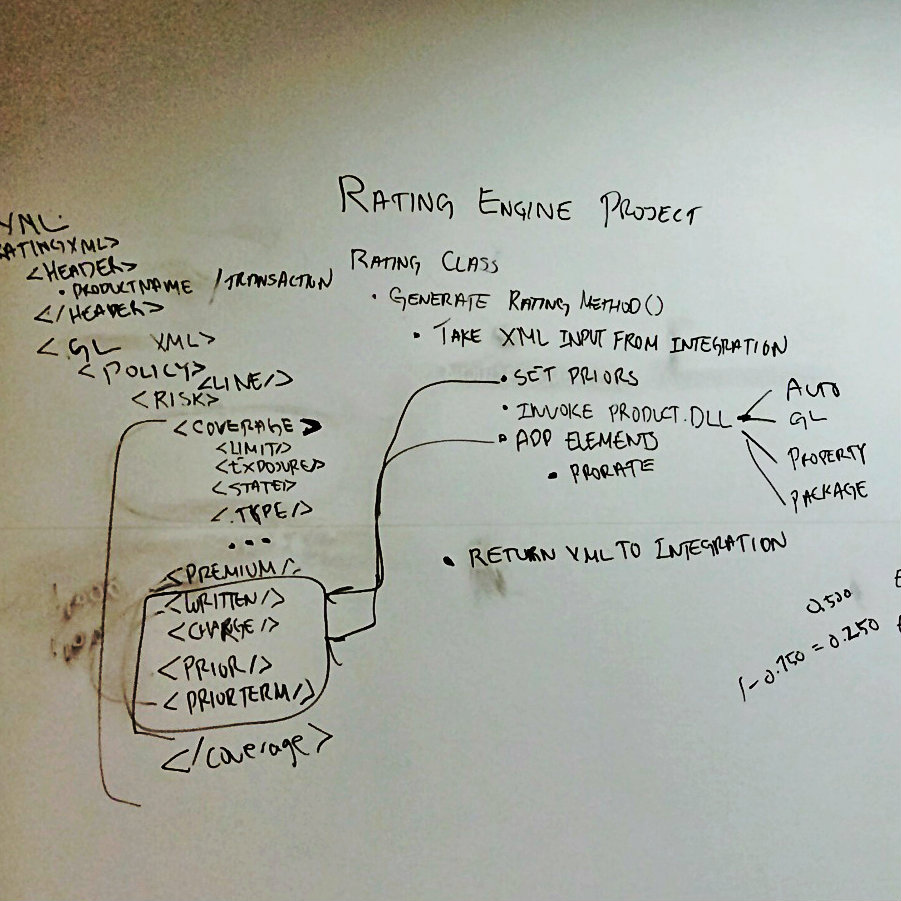 RATING ENGINE PROJECT
XML:
RATINGXML>
<HEADER>
• PRODUCTNAME /TRANSACTION
</HEADER>
<GL XML>
<POLICY>
<LINE/>
<RISK>
<COVERAGE>
<LIMIT>
<EXPOSURE>
<STATE>
<TYPE/>
...
<PREMIUM/>
<WRITTEN/>
<CHARGE/>
<PRIOR/>
<PRIORTERM/>
</coverage>
RATING CLASS
• GENERATE RATING METHOD()
• TAKE XML INPUT FROM INTEGRATION
• SET PRIORS
• INVOKE PRODUCT.DLL
AUTO
GL
PROPERTY
PACKAGE
• ADD ELEMENTS
• PRORATE
• RETURN XML TO INTEGRATION
0.500
1-0.750 = 0.250